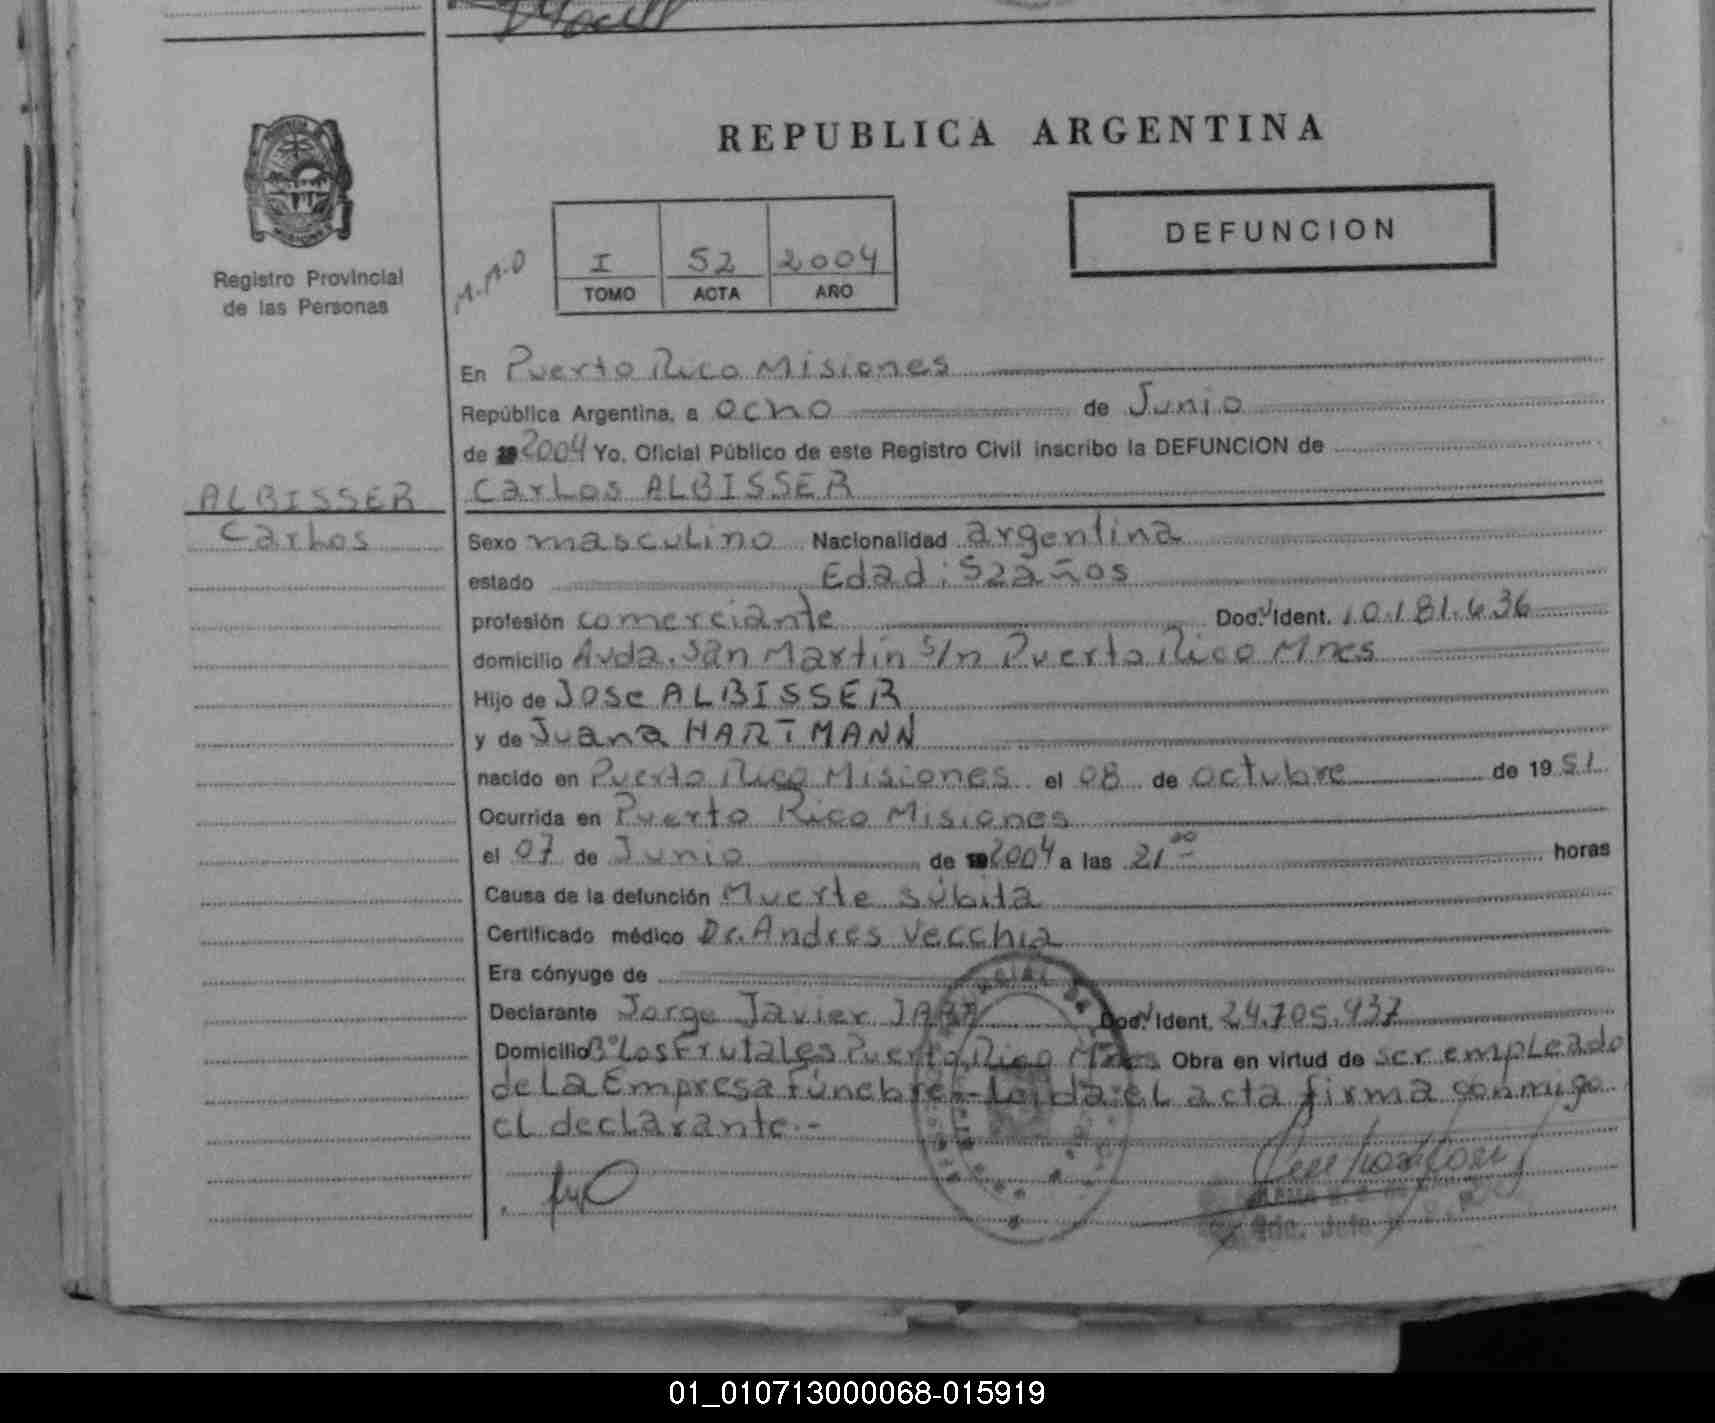 REPUBLICA ARGENTINA
DEFUNCION
Registro Provincial
de las Personas
I 52 2004
TOMO ACTA AÑO
En Puerto Rico Misiones
República Argentina, a ocho de Junio
de 2004 Yo, Oficial Público de este Registro Civil inscribo la DEFUNCION de
ALBISSER
Carlos
Carlos ALBISSER
Sexo masculino Nacionalidad argentina
estado Edad: 52 años
profesión comerciante Doc. Ident. 10.181.636
domicilio Avda. San Martín s/n Puerto Rico Mnes
Hijo de Jose ALBISSER
y de Juana HARTMANN
nacido en Puerto Rico Misiones el 08 de octubre de 1951
Ocurrida en Puerto Rico Misiones
el 07 de Junio de 2004 a las 21 00 horas
Causa de la defunción Muerte súbita
Certificado médico Dr. Andres Vecchia
Era cónyuge de
Declarante Jorge Javier Doc. Ident. 24.705.937
Domicilio Bº Los Frutales Puerto Rico Mnes Obra en virtud de ser empleado
de La Empresa Fúnebre.- Leída el acta firma conmigo
el declarante.-
01_010713000068-015919